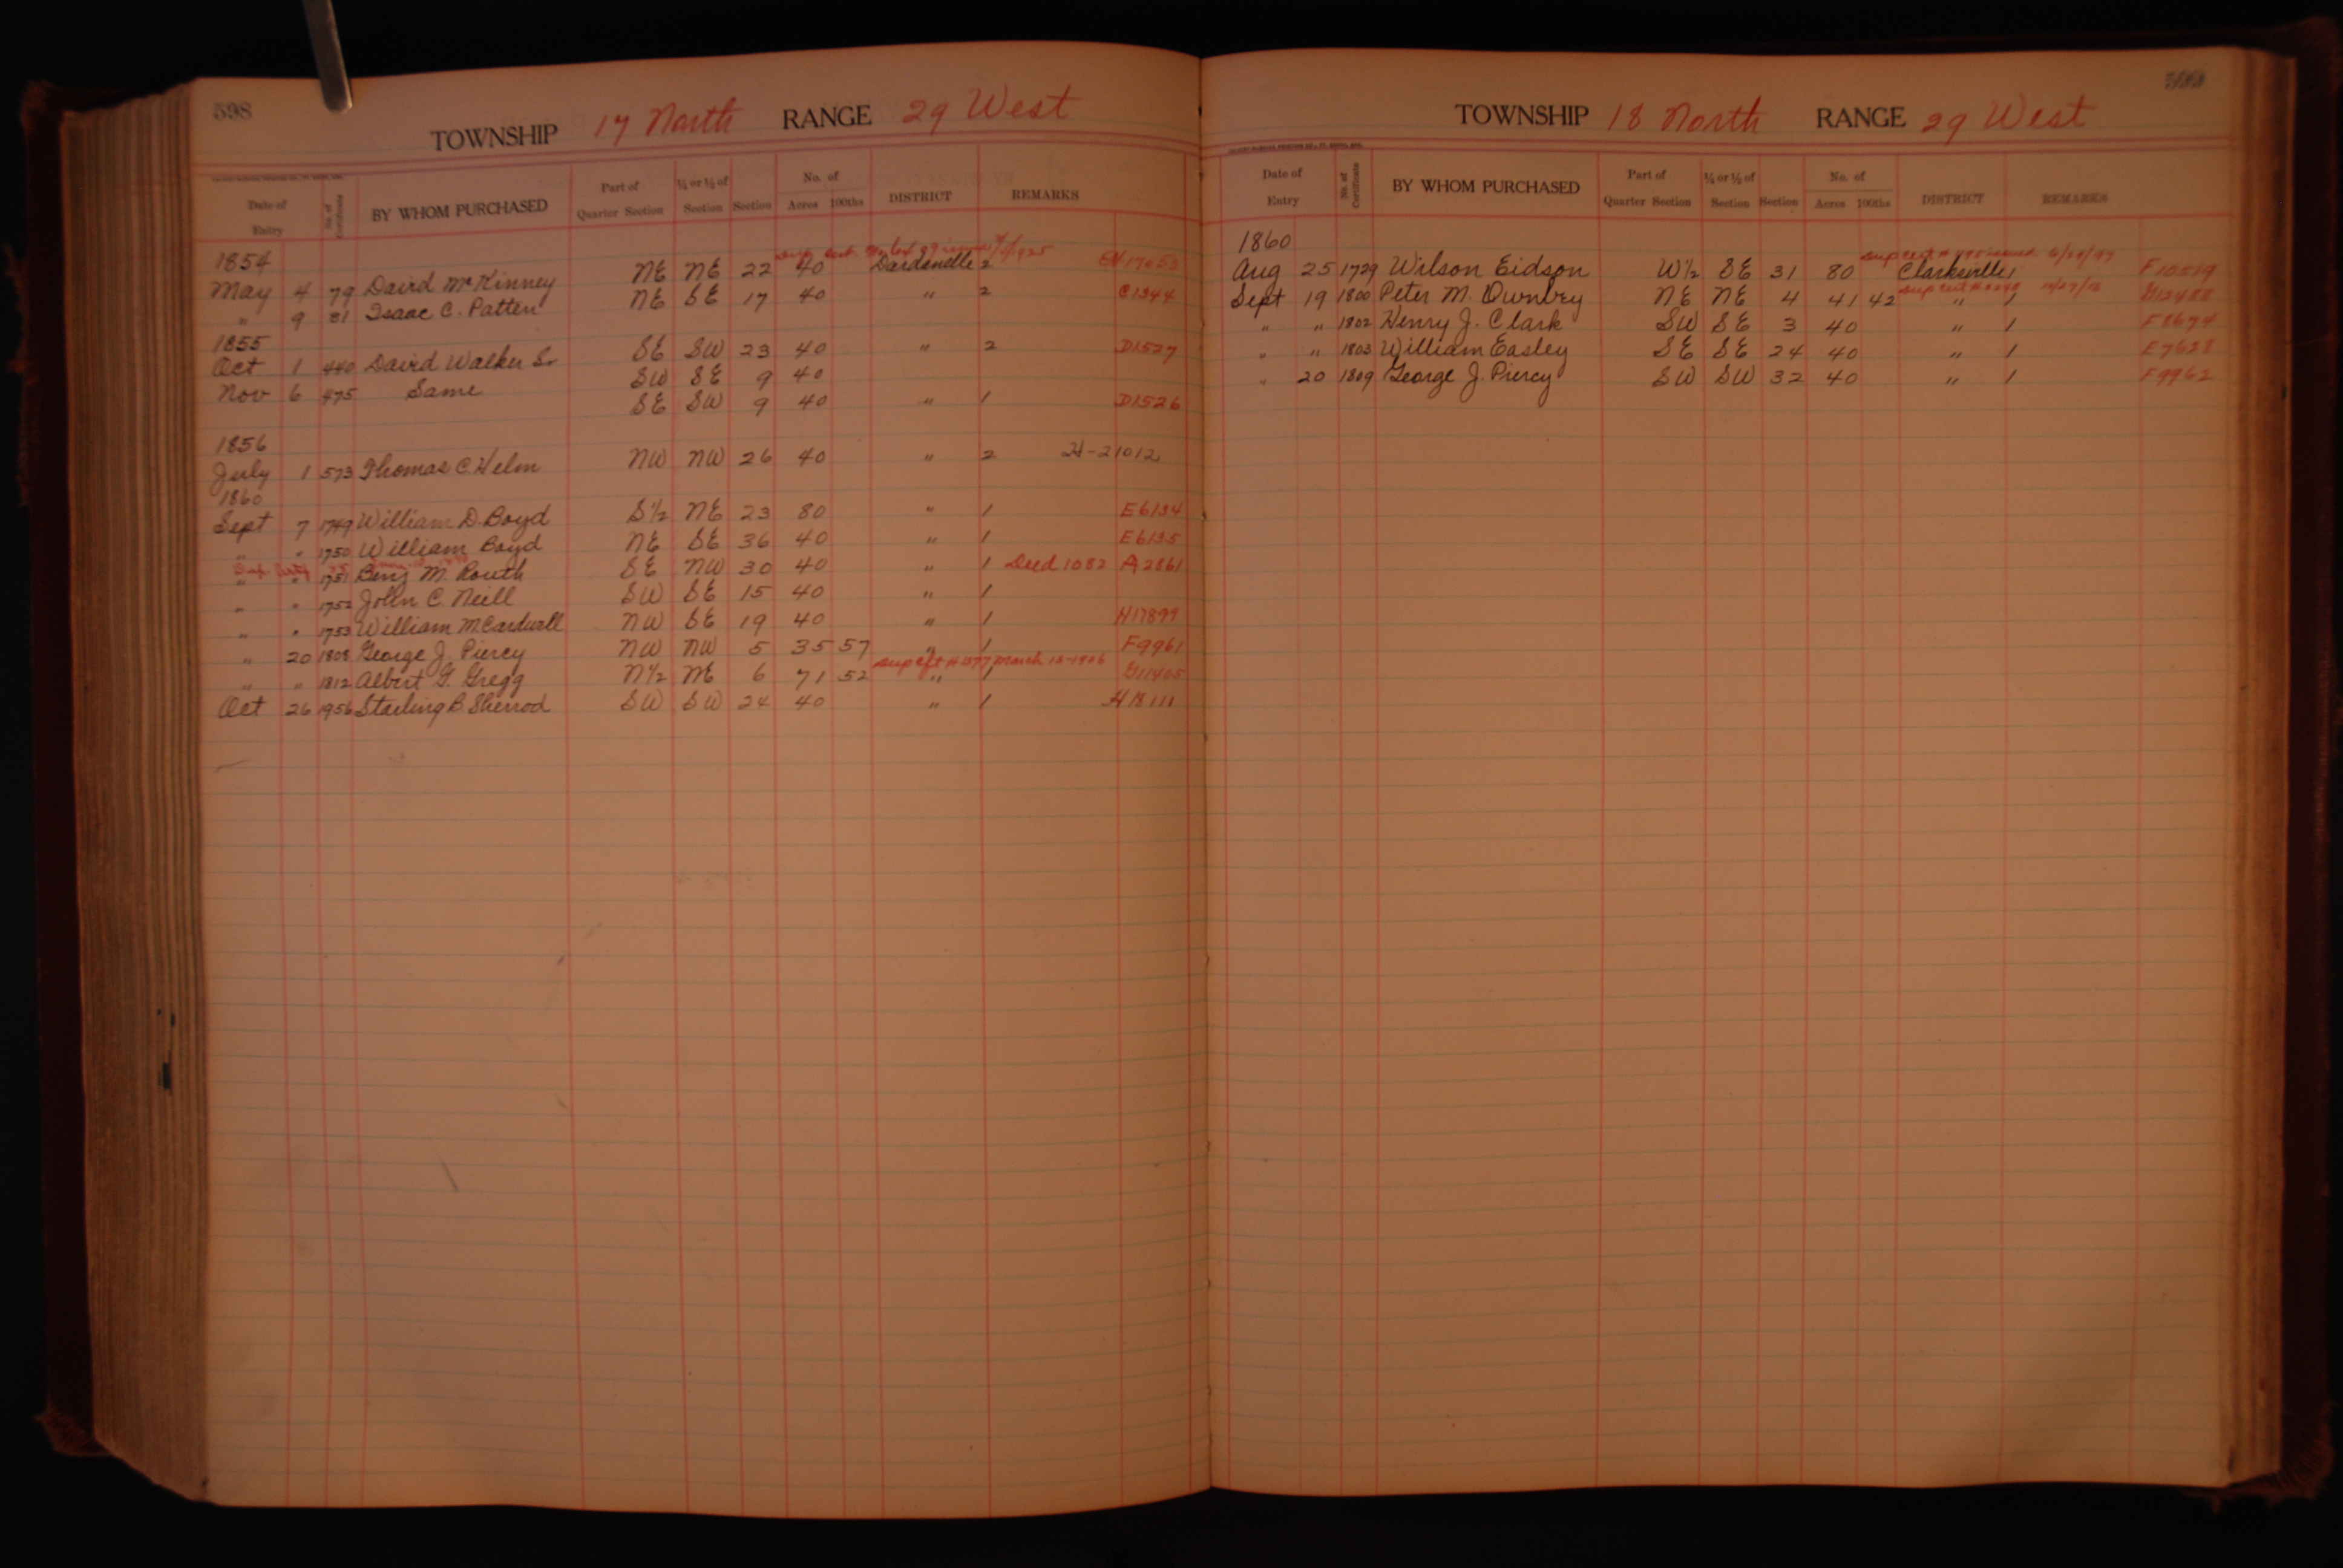 598
TOWNSHIP 17 North RANGE 29 West
Date of Entry No. of Certificate BY WHOM PURCHASED Part of Quarter Section ¼ or ½ of Section Section No. of Acres 100ths DISTRICT REMARKS
1854
May 4 79 David McKinney NE NE 22 40 Dardanelle 2 17053
" 9 81 Isaac C. Patten NE SE 17 40 " 2 C1344
1855
Oct 1 440 David Walker Sr SE SW 23 40 " 2 D1527
Nov 6 475 Same SW SE 9 40
SE SW 9 40 " 1 D1526
1856
July 1 573 Thomas C. Helm NW NW 26 40 " 2 21012
1860
Sept 7 1749 William D. Boyd S½ NE 23 80 " 1 E6134
" " 1750 William Boyd NE SE 36 40 " 1 E6135
" " 1751 Benj M. Routh SE NW 30 40 " 1 Deed 1082 A2861
" " 1752 John C. Neill SW SE 15 40 " 1
" " 1753 William M. Cardwell NW SE 19 40 " 1 H17899
" 20 1808 George J. Piercy NW NW 5 35 57 " 1 F9961
sup cft # 1377 March 15-1906
" " 1812 Albert G. Gregg N½ NE 6 71 52 " 1 G11405
Oct 26 1956 Starling B Sherrod SW SW 24 40 " 1 H18111
599
TOWNSHIP 18 North RANGE 29 West
Date of Entry No. of Certificate BY WHOM PURCHASED Part of Quarter Section ¼ or ½ of Section Section No. of Acres 100ths DISTRICT REMARKS
1860
sup cert # issued
Aug 25 1729 Wilson Eidson W½ SE 31 80 Clarksville 1 F10519
sup cert #
Sept 19 1800 Peter M. Ownbey NE NE 4 41 42 " 1 G12488
" " 1802 Henry J. Clark SW SE 3 40 " 1 F8674
" " 1803 William Easley SE SE 24 40 " 1 E7628
" 20 1809 George J. Piercy SW SW 32 40 " 1 F9962